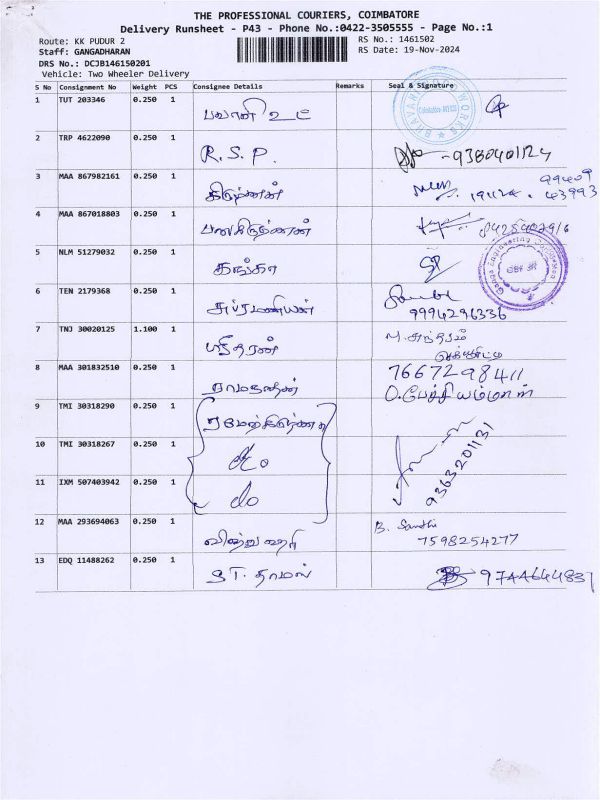 THE PROFESSIONAL COURIERS, COIMBATORE
Delivery Runsheet - P43 - Phone No.:0422-3505555 - Page No.:1
Route: KK PUDUR 2
RS No.: 1461502
Staff: GANGADHARAN
RS Date: 19-Nov-2024
DRS No.: DCJB146150201
Vehicle: Two Wheeler Delivery
S No Consignment No Weight PCS Consignee Details Remarks Seal & Signature
1 TUT 203346 0.250 1 பவானி உட்
2 TRP 4622090 0.250 1 R.S.P. -9380401124
3 MAA 867982161 0.250 1 கிருஷ்ணன் 19/11/24. 99409
43993
4 MAA 867018803 0.250 1 பாலகிருஷ்ணன்
5 NLM 51279032 0.250 1 கங்கா SP
Ganga Engineering
6 TEN 2179368 0.250 1 சுப்ரமணியன்
9994296336
7 TNJ 30020125 1.100 1 ஸ்ரீதரன் M. சுந்தரம்
8 MAA 301832510 0.250 1 ராமநாதன் 7667298411
O.பேச்சியம்மாள்
9 TMI 30318290 0.250 1 ரமேஷ்கிருஷ்ணா
10 TMI 30318267 0.250 1 do 9363201131
11 IXM 507403942 0.250 1 do
12 MAA 293694063 0.250 1 விஷ்ணு ஹரி B. Santhi
7598254277
13 EDQ 11488262 0.250 1 S.T. தாமஸ் 9744644837